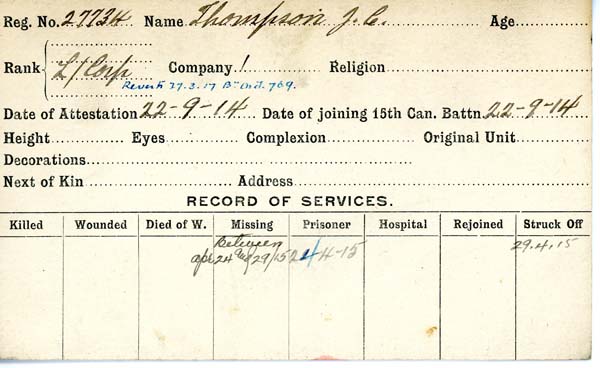 Reg. No. 27734 Name Thompson J. C. Age
Rank L/Corp Company 1 Religion
Reverts 27.3.17 Bn Ord. 769.
Date of Attestation 22-9-14 Date of joining 15th Can. Battn 22-9-14
Height Eyes Complexion Original Unit
Decorations
Next of Kin Address
RECORD OF SERVICES.
Killed Wounded Died of W. Missing Prisoner Hospital Rejoined Struck Off
Between
apl 24 and 29/15 24/4-15 29.4.15